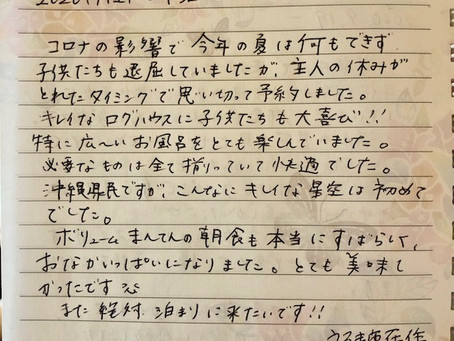 コロナの影響で今年の夏は何もできず
子供たちも退屈していましたが、主人の休みが
とれたタイミングで思い切って予約しました。
キレイなログハウスに子供たちも大喜び!!
特に広〜いお風呂をとても楽しんでいました。
必要なものは全て揃っていて快適でした。
沖縄県民ですが、こんなにキレイな星空は初めて
でした。
ボリュームまんてんの朝食も本当にすばらしく、
おなかがいっぱいになりました。とても美味し
かったです
また絶対泊まりに来たいです!!
うるま市在住